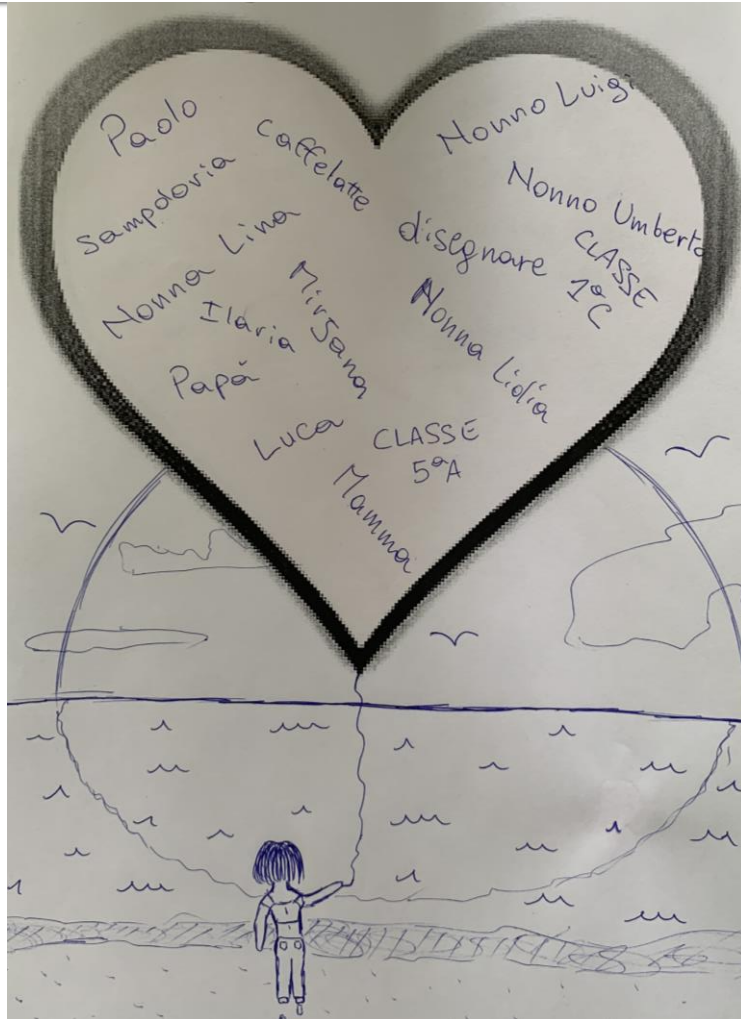 Paolo
caffelatte
Nonno Luigi
Sampdoria
Nonno Umberto
Nonna Lina
disegnare
CLASSE
1ªC
Ilaria
Mirjana
Nonna Lidia
Papà
Luca
CLASSE
5ªA
Mamma